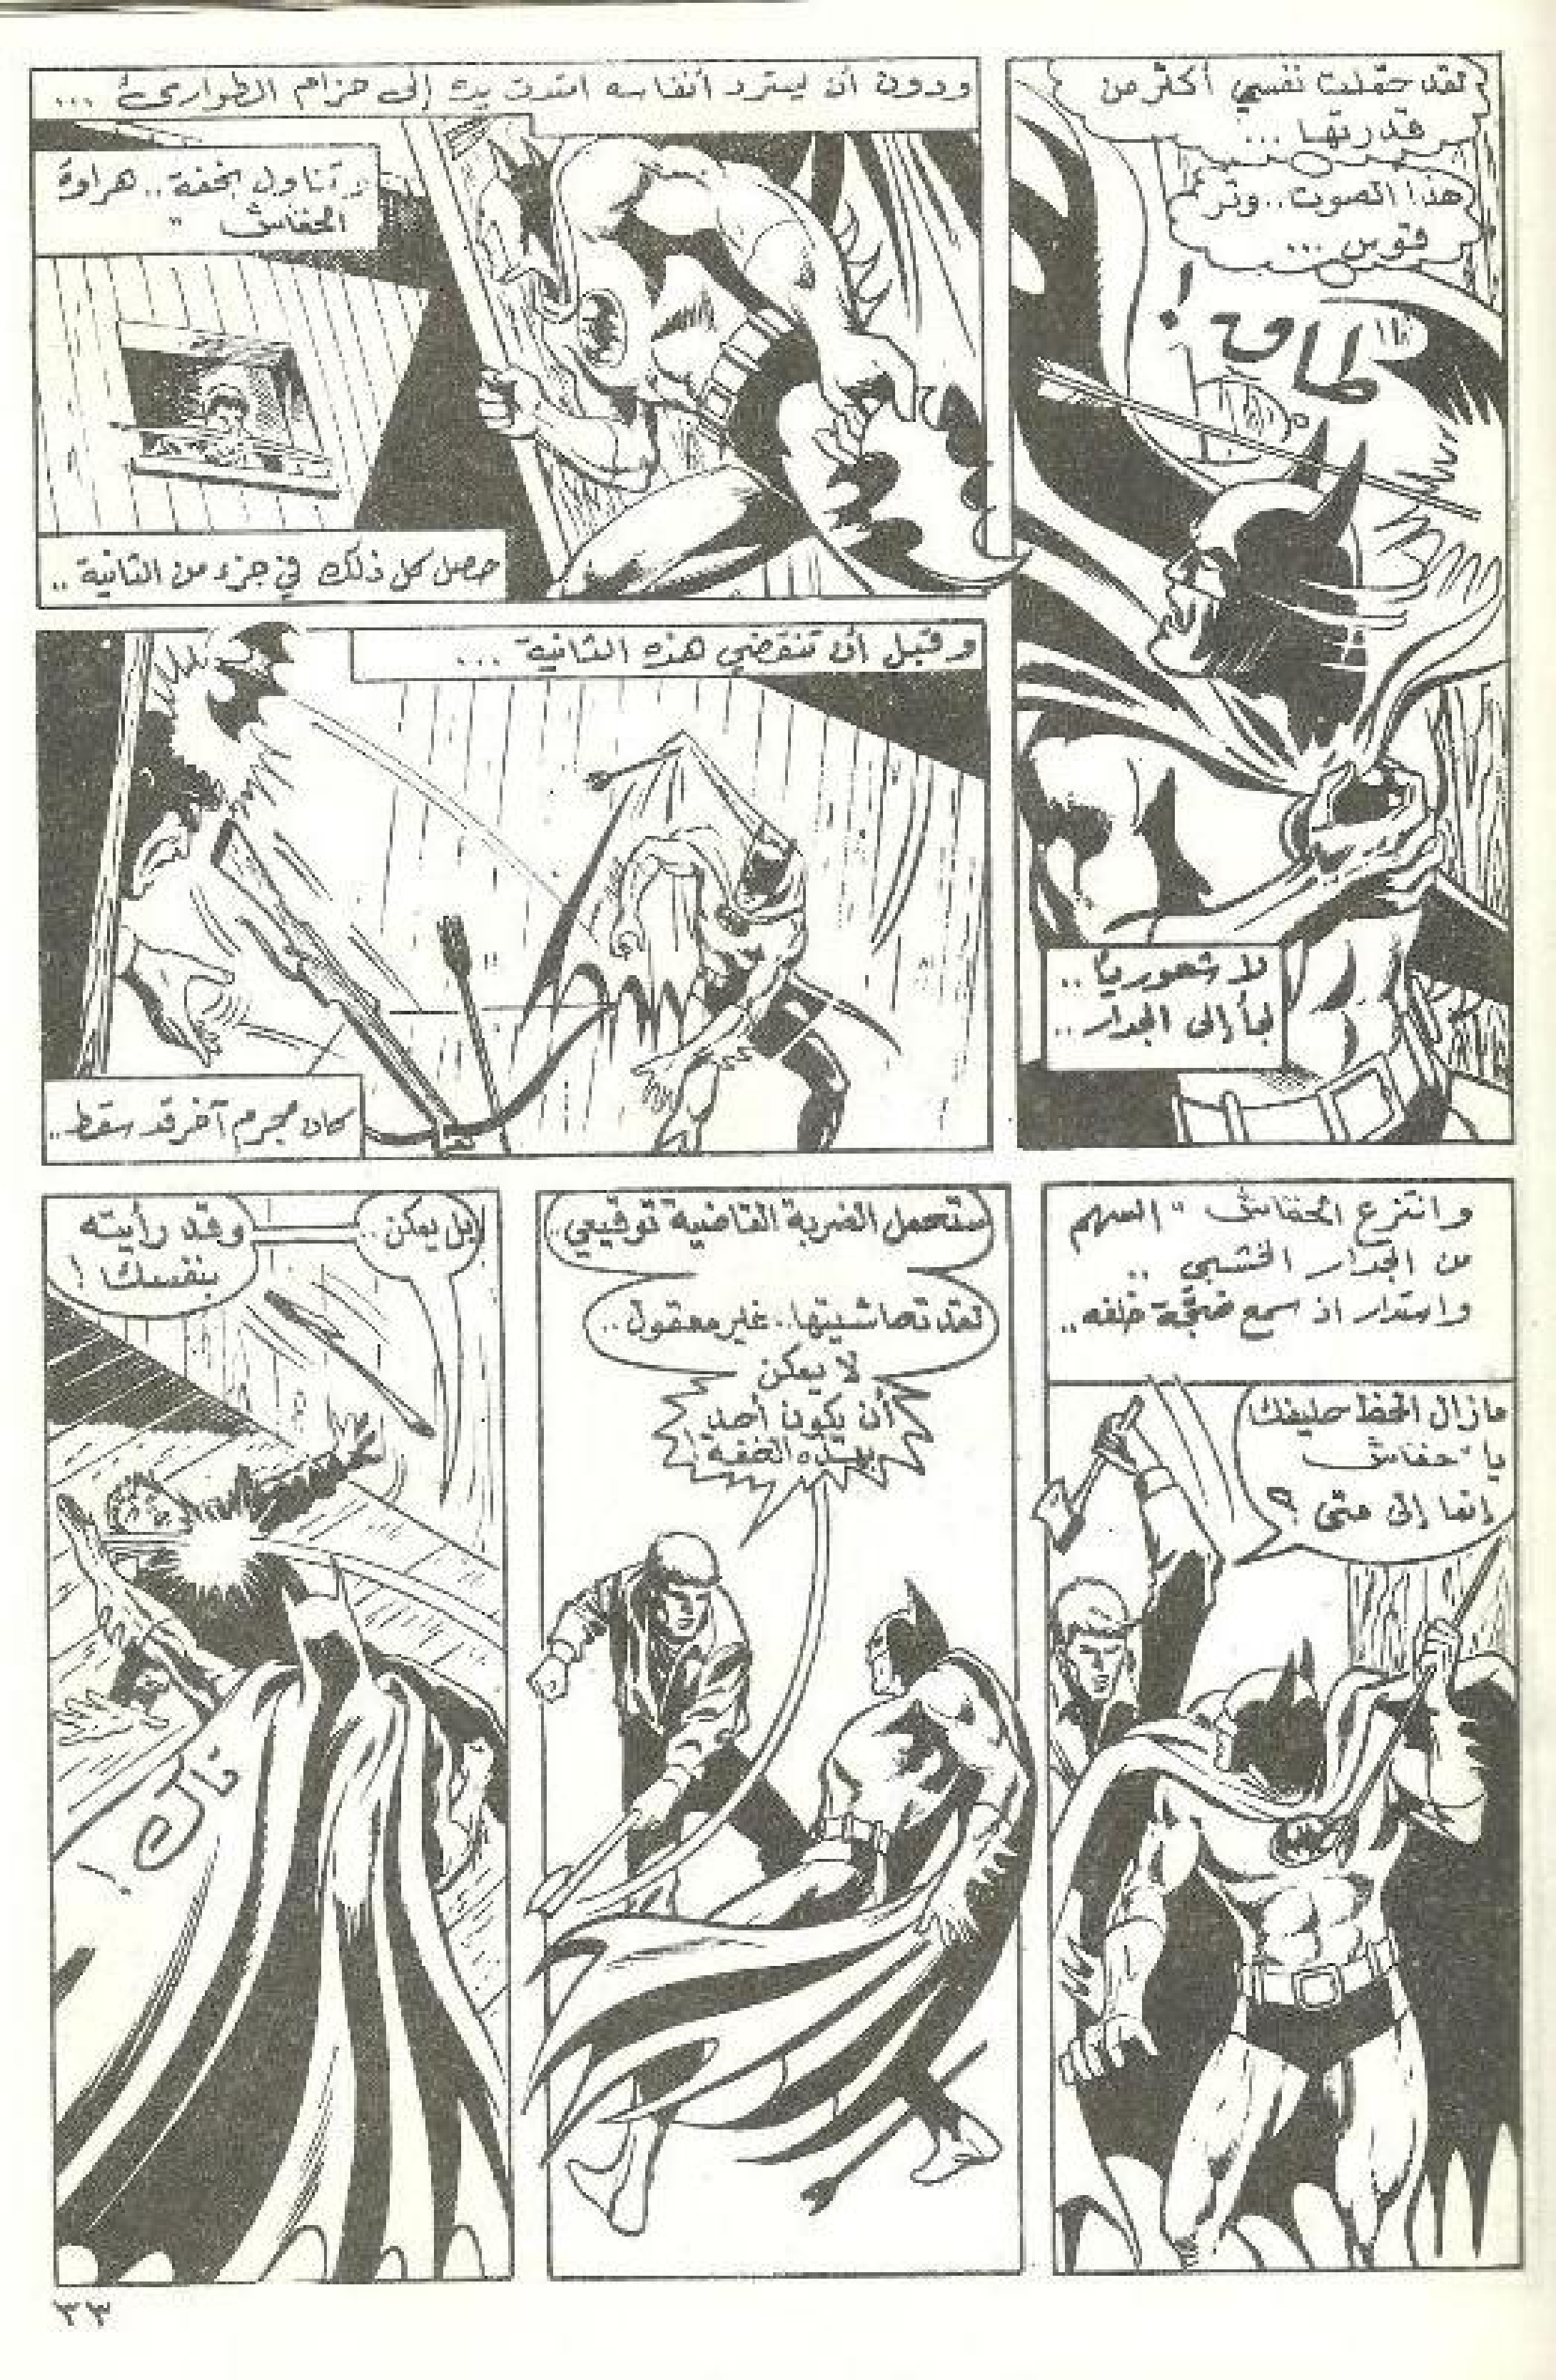 لقد حمّلت نفسي أكثر من
قدرتها ...
هذا الصوت.. وتر
قوس ...
طاق !
لا شعورياً ..
لجأ إلى الجدار ..
ودون أن يسترد أنفاسه امتدت يده إلى حزام الطوارئ ...
وتناول بخفة.. هراوة
الخفاش "
حصل كل ذلك في جزء من الثانية ..
وقبل أن تنقضي هذه الثانية ...
كان مجرم آخر قد سقط ..
وانتزع الخفاش " السهم
من الجدار الخشبي ..
واستدار اذ سمع ضجّة خلفه ..
مازال الحظ حليفك
يا "خفاش
إنما إلى متى ؟
ستحمل الضربة القاضية توقيعي ..
لقد تحاشيتها.. غير معقول ..
لا يمكن
أن يكون أحد
بهذه الخفة !
بل يمكن ..
وقد رأيته
بنفسك !
تاك !
٣٣